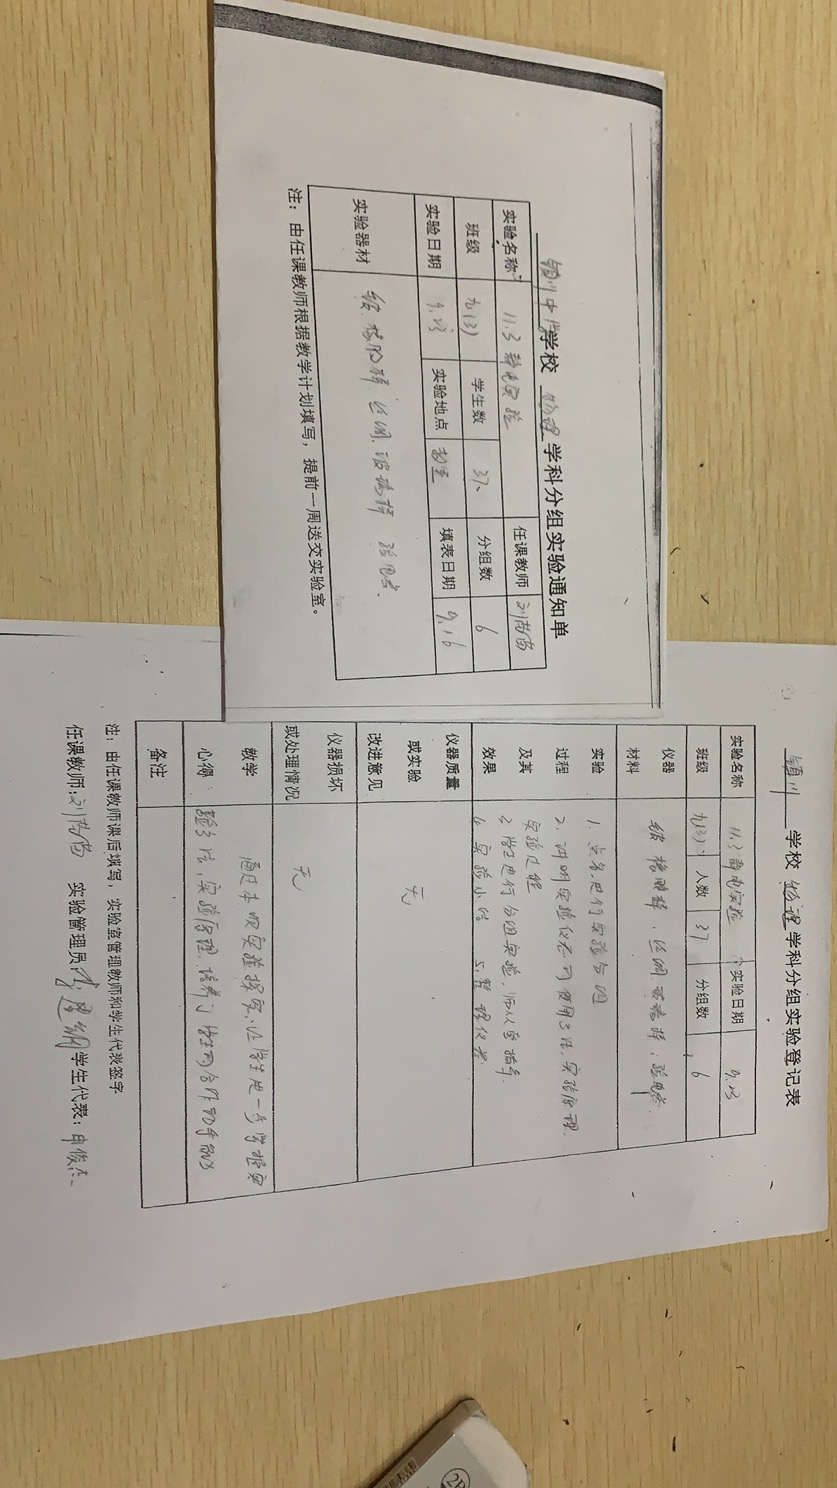 颍川中学学校 物理 学科分组实验通知单
实验名称 11.3 静电实验 任课教师
班级 九(3) 学生数 37 分组数 6
实验日期 9.23 实验地点 教室 填表日期 9.16
实验器材 橡胶棒 玻璃棒 验电器.
注：由任课教师根据教学计划填写，提前一周送交实验室。
颍川 学校 物理 学科分组实验登记表
实验名称 11.3 静电实验 实验日期 9.23
班级 九(3) 人数 37 分组数 6
仪器
材料
橡胶棒、玻璃棒、验电器.
实验
过程
及其
效果
1. 点名进行实验分组
2. 讲明实验仪器的使用方法，实验原理.
实验过程
3. 学生进行分组实验，师从旁指导.
4. 实验小结 5. 整理仪器
仪器质量
或实验
改进意见
无
仪器损坏
或处理情况
无
教学
心得：
通过本次实验探究，让学生进一步掌握实
验方法、实验原理、培养了学生的合作动手能力
备注
注：由任课教师课后填写，实验室管理教师和学生代表签字
任课教师： 实验管理员： 学生代表：
2B